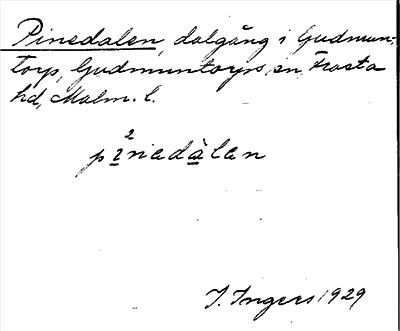 Pinedalen, dalgång i Gudmun-
torp, Gudmuntorps sn, Frosta
hd, Malm. l.
2
pinedàlen
I. Ingers 1929